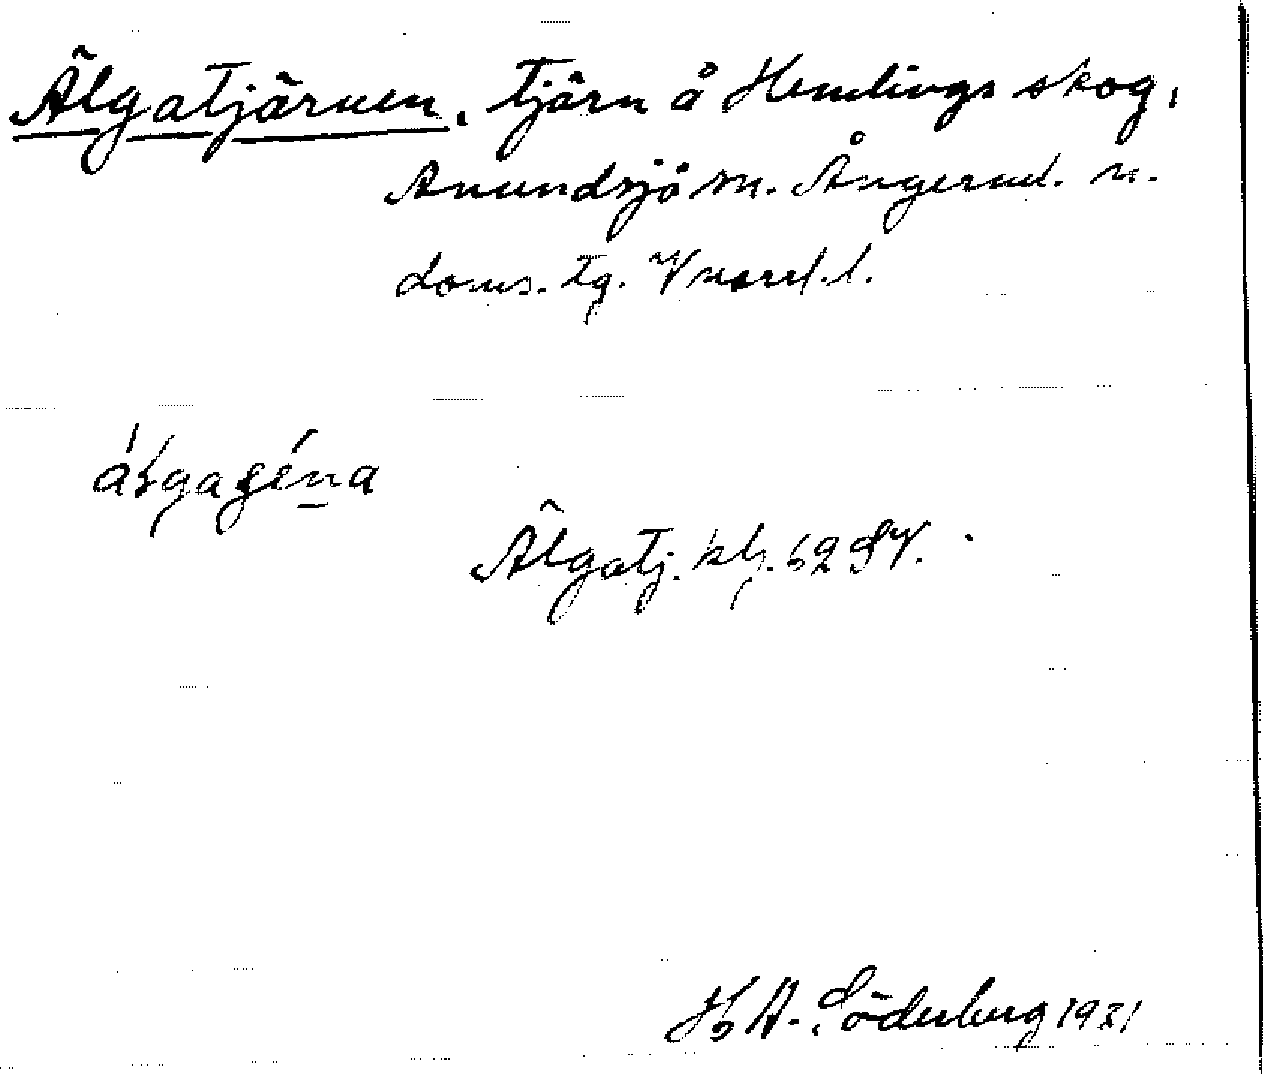 Älgatjärnen, tjärn å Hemlings skog,
Anundsjö sn. Ångerml. n.
doms. tg. Vnorrl. l.
Älgatj. kbl. 62 SV.
H A. Söderberg 1921